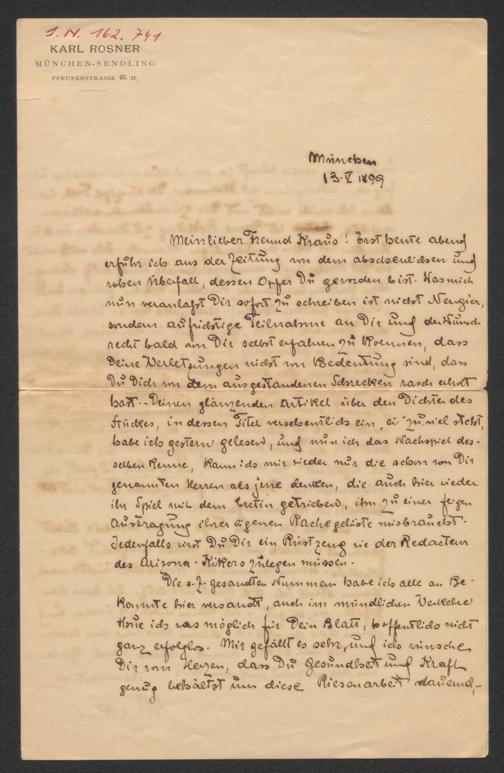 J.N. 162.741
KARL ROSNER
MÜNCHEN-SENDLING
PFEUFERSTRASSE 45. II.
München
13. V 1899
Mein lieber Freund Kraus! Erst heute abend
erfuhr ich aus der Zeitung von dem abscheulichen und
rohen Überfall, dessen Opfer Du geworden bist. Was mich
nun veranlaßt Dir sofort zu schreiben ist nicht Neugier,
sondern aufrichtige Teilnahme an Dir und der Wunsch
recht bald von Dir selbst erfahren zu koennen, dass
Deine Verletzungen nicht von Bedeutung sind, dass
Du Dich von dem ausgestandenen Schrecken rasch erholt
hast. Deinen glänzenden Artikel über den Dichter des
Stückes, in dessen Titel versehentlich ein „ei" zuviel steht,
habe ich gestern gelesen, und nun ich das Nachspiel des-
selben kenne, kann ich mir wieder nur die schon von Dir
genannten Herren als jene denken, die auch hier wieder
ihr Spiel mit dem Cretin getrieben, ihn zu einer feigen
Austragung ihrer eigenen Rachegelüste misbraucht.
Jedenfalls wirst Du Dir ein Rüstzeug wie der Redacteur
des Arizona-Kikers zulegen müssen.
Die s. Z. gesandten Nummern habe ich alle an Be-
kannte hier versandt, auch im mündlichen Verkehre
thue ich was möglich für Dein Blatt, hoffentlich nicht
ganz erfolglos. Mir gefällt es sehr, und ich wünsche
Dir von Herzen, dass Du Gesundheit und Kraft
genug behältst um diese Riesenarbeit dauernd,-